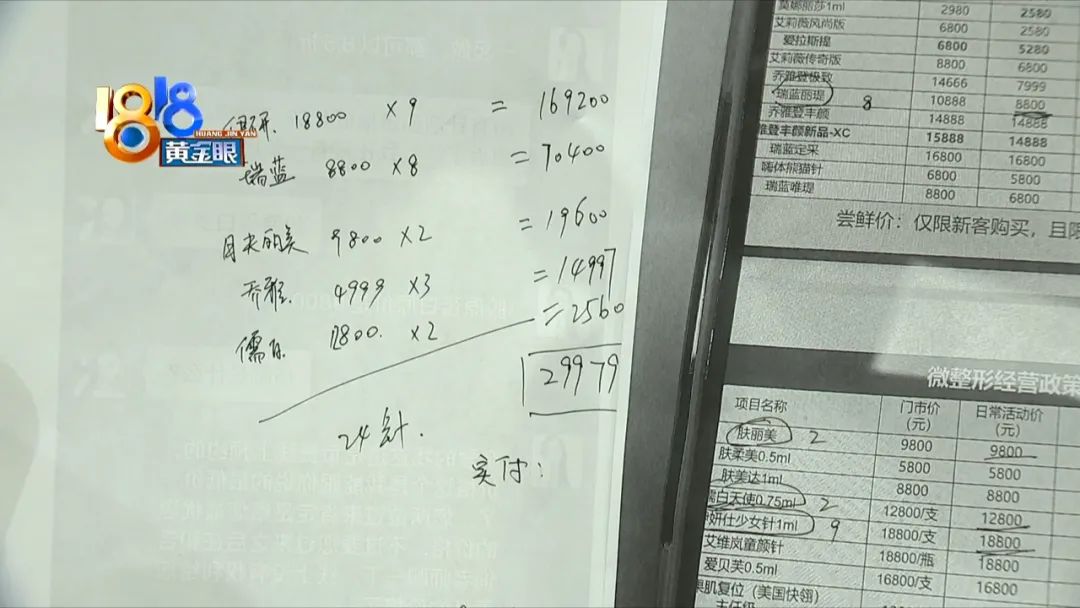 1818
HUANG JIN YAN
黄金眼
18800 ×9 = 169200
瑞蓝 8800 ×8 = 70400
肤丽美 9800 ×2 = 19600
乔雅 4999 ×3 = 14997
儒白 12800 ×2 = 2560
29979
24针.
实付:
莫娜丽莎1ml 2980 2580
艾莉薇风尚版 6800 2580
爱拉斯提 6800 5280
艾莉薇传奇版 8800 6800
乔雅登极致 14666 7999
瑞蓝丽瑅 8 10888 8800
乔雅登丰颜 14888 14888
雅登丰颜新品-XC 15888 14888
瑞蓝定采 16800 16800
嗨体熊猫针 6800 5800
瑞蓝唯瑅 8800 6800
尝鲜价：仅限新客购买，且限
微整形经营政策
项目名称 门市价(元) 日常活动价(元)
肤丽美 2 9800 9800
肤柔美0.5ml 5800 5800
肤美达1ml 8800 8800
儒白天使0.75ml 2 12800/支 12800
妍仕少女针1ml 9 18800/支 18800
艾维岚童颜针 18800/瓶 18800
爱贝芙0.5ml 16800/支 16800
肌复位（美国快翎）
主任级